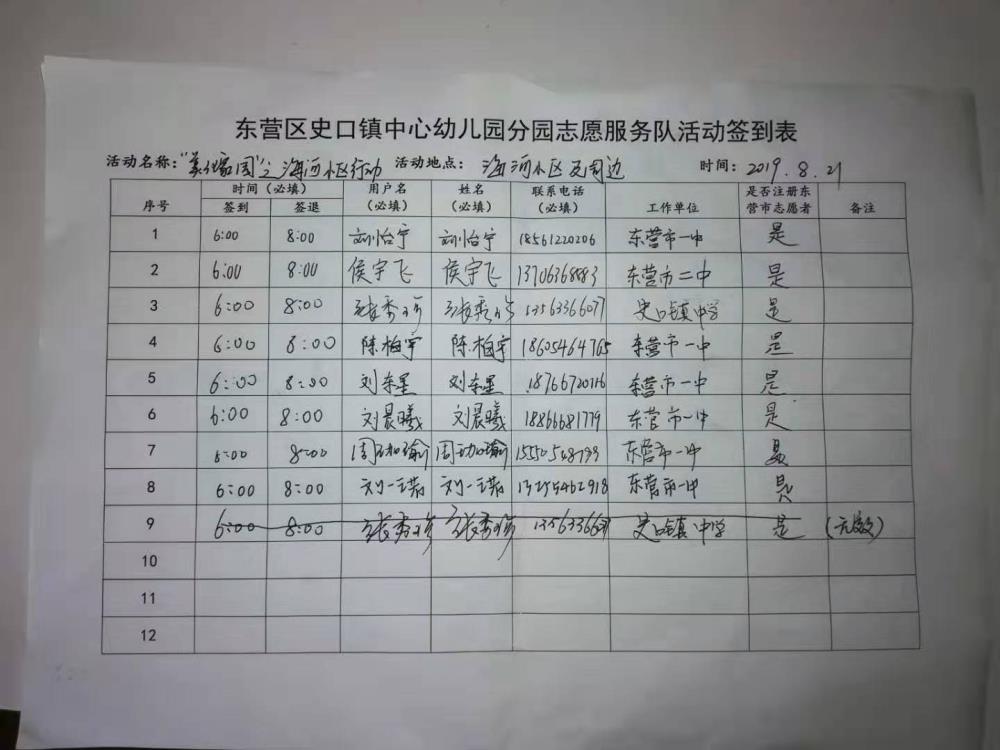 东营区史口镇中心幼儿园分园志愿服务队活动签到表
活动名称：“美化家园”之海河小区行动 活动地点： 海河小区及周边 时间：2019.8.21
序号 时间（必填） 用户名（必填） 姓名（必填） 联系电话（必填） 工作单位 是否注册东营市志愿者 备注
签到 签退
1 6:00 8:00 刘怡宁 刘怡宁 18561220206 东营市一中 是
2 6:00 8:00 侯宇飞 侯宇飞 13706368883 东营市二中 是
3 6:00 8:00 张秀 张秀 13563366077 史口镇中学 是
4 6:00 8:00 陈柏宇 陈柏宇 18605464765 东营市一中 是
5 6:00 8:00 刘东星 刘东星 18766720116 东营市一中 是
6 6:00 8:00 刘晨曦 刘晨曦 18866681779 东营市一中 是
7 6:00 8:00 周 瑜 周 瑜 东营市一中 是
8 6:00 8:00 刘一 刘一 东营市一中 是
9 6:00 8:00 张秀 张秀 史口镇中学 是 (无效)
10
11
12